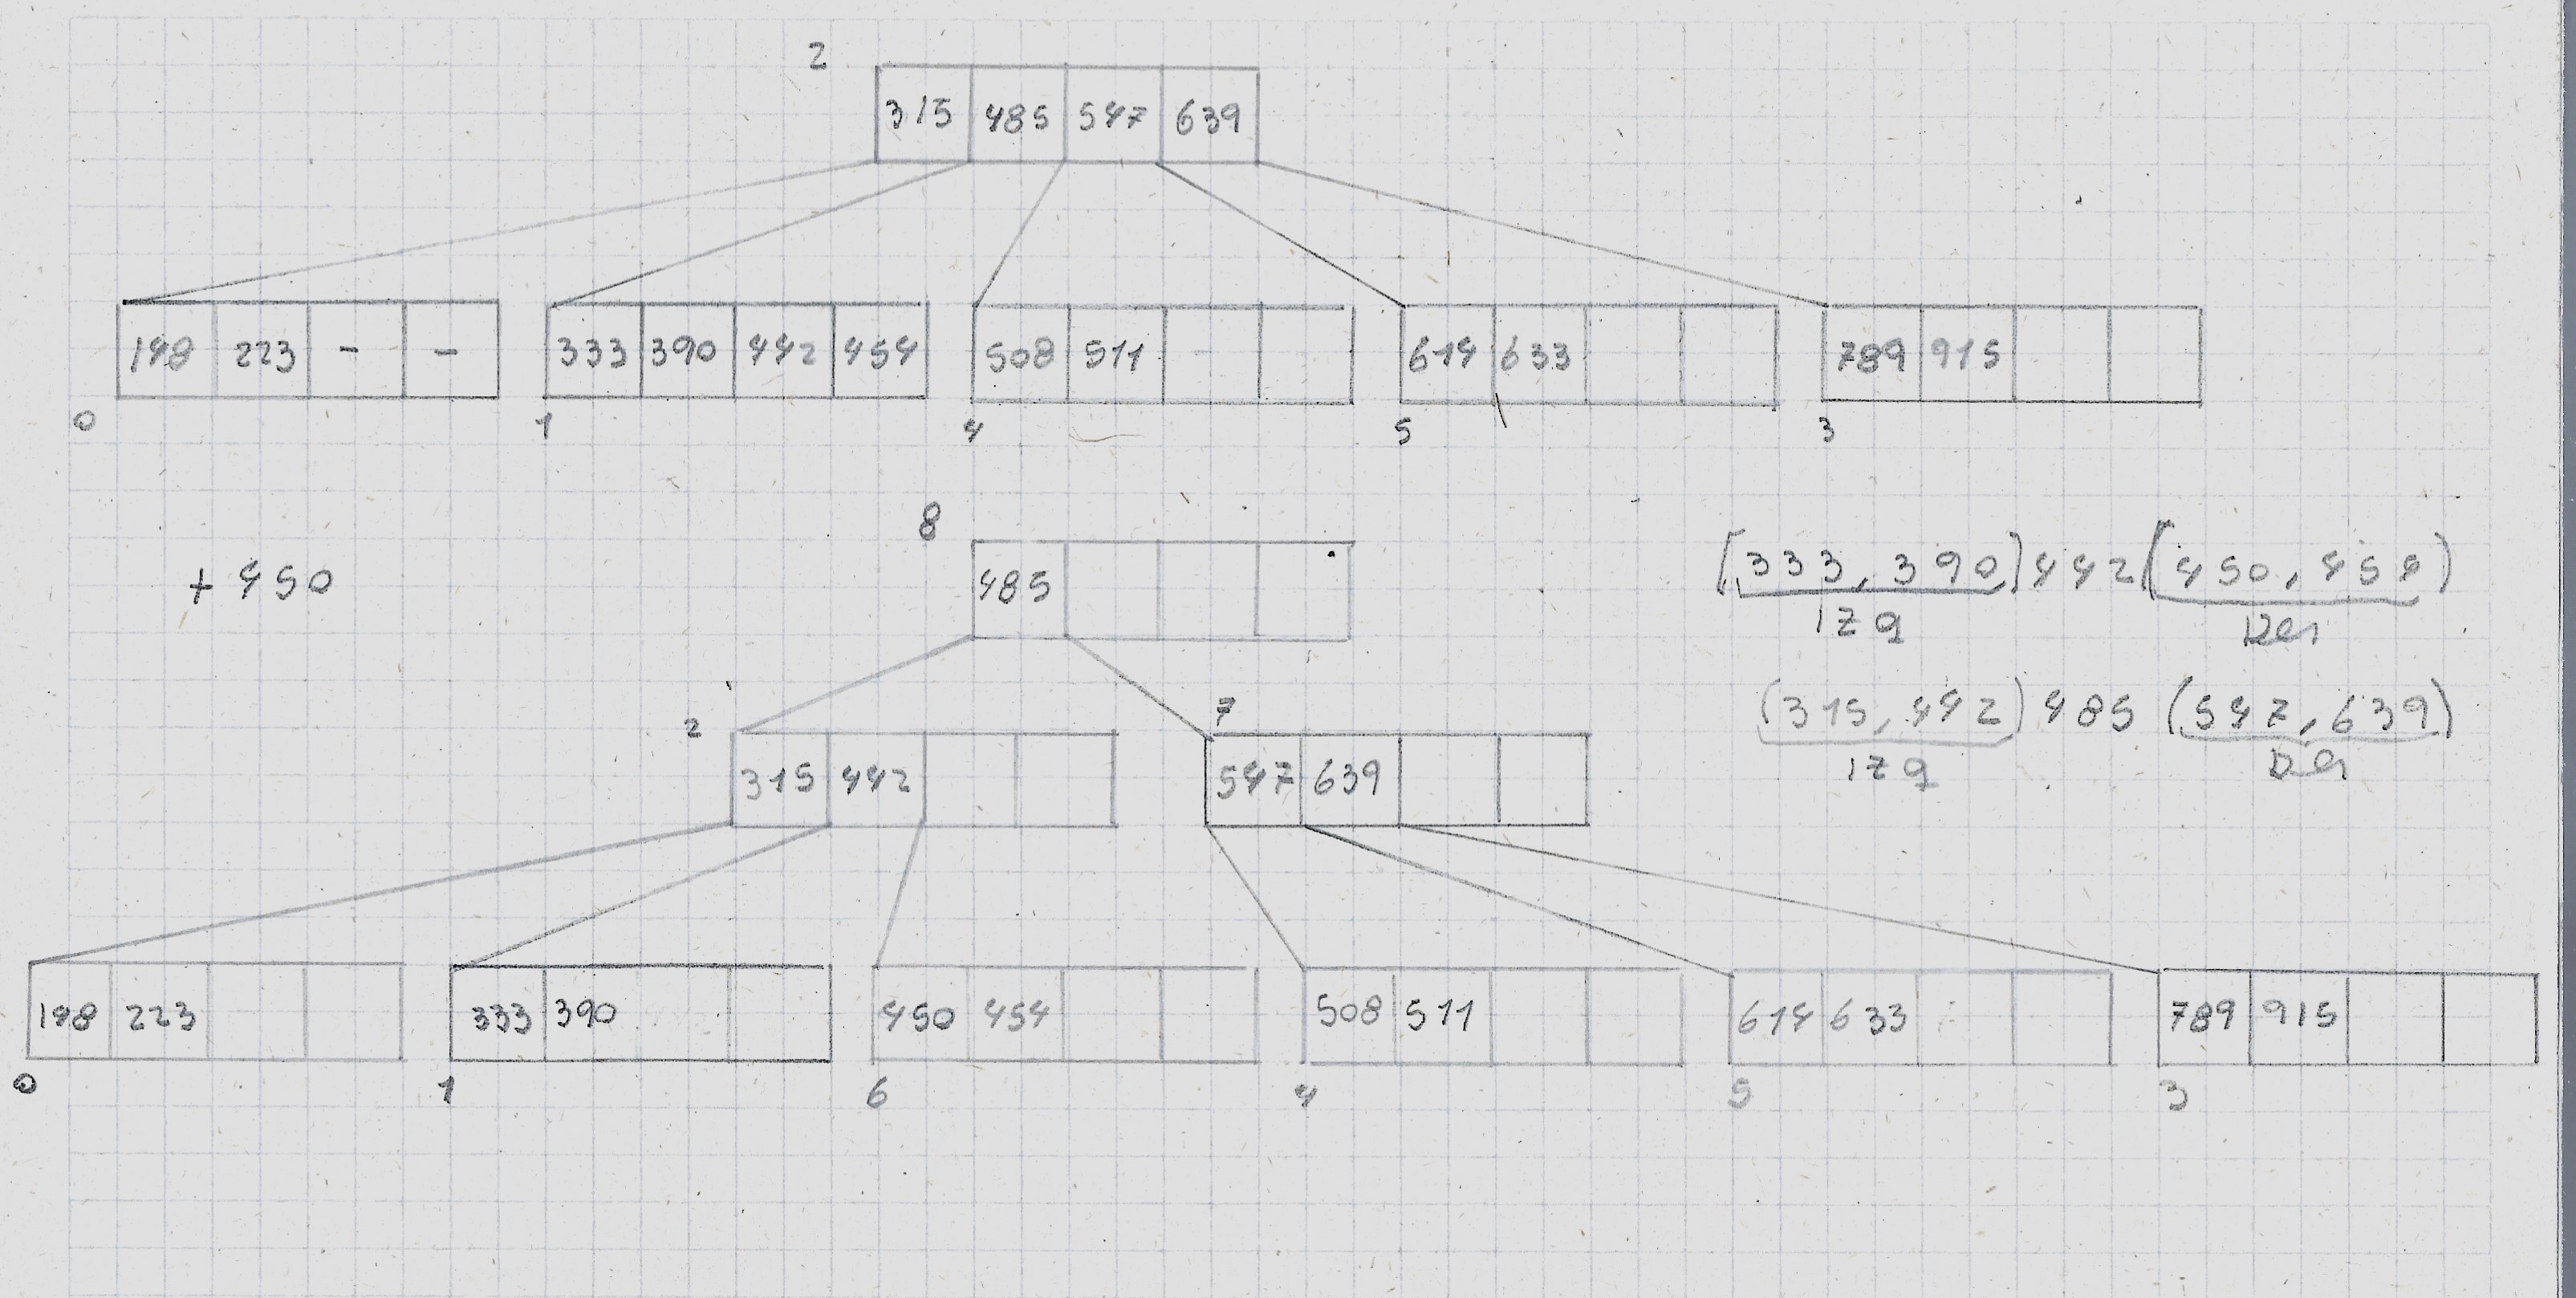 2
315 485 547 639
148 223 - - 333 390 442 454 508 511 614 633 789 915
0 1 4 5 3
8
+ 450
485
(333, 390) 442 (450, 454)
izq Der
(315, 442) 485 (547, 639)
izq Der
2 7
315 442 547 639
148 223 333 390 450 454 508 511 614 633 789 915
0 1 6 4 5 3